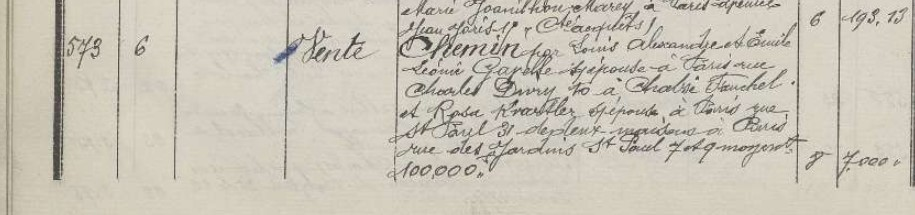 Marie Joanithou-Marey à Paris
Jean (Acquêts) 6 193,13
573 6 Vente Chemin par Louis Alexandre et Emile
Léonie Gavelle s/épouse à Paris rue
Charles Divry 40 à Fauchel
et Rosa Kraettler s/épouse à Paris rue
St Paul 31 de deux maisons à Paris
rue des Jardins St Paul 7 et 9 moyent
100,000 8 7,000